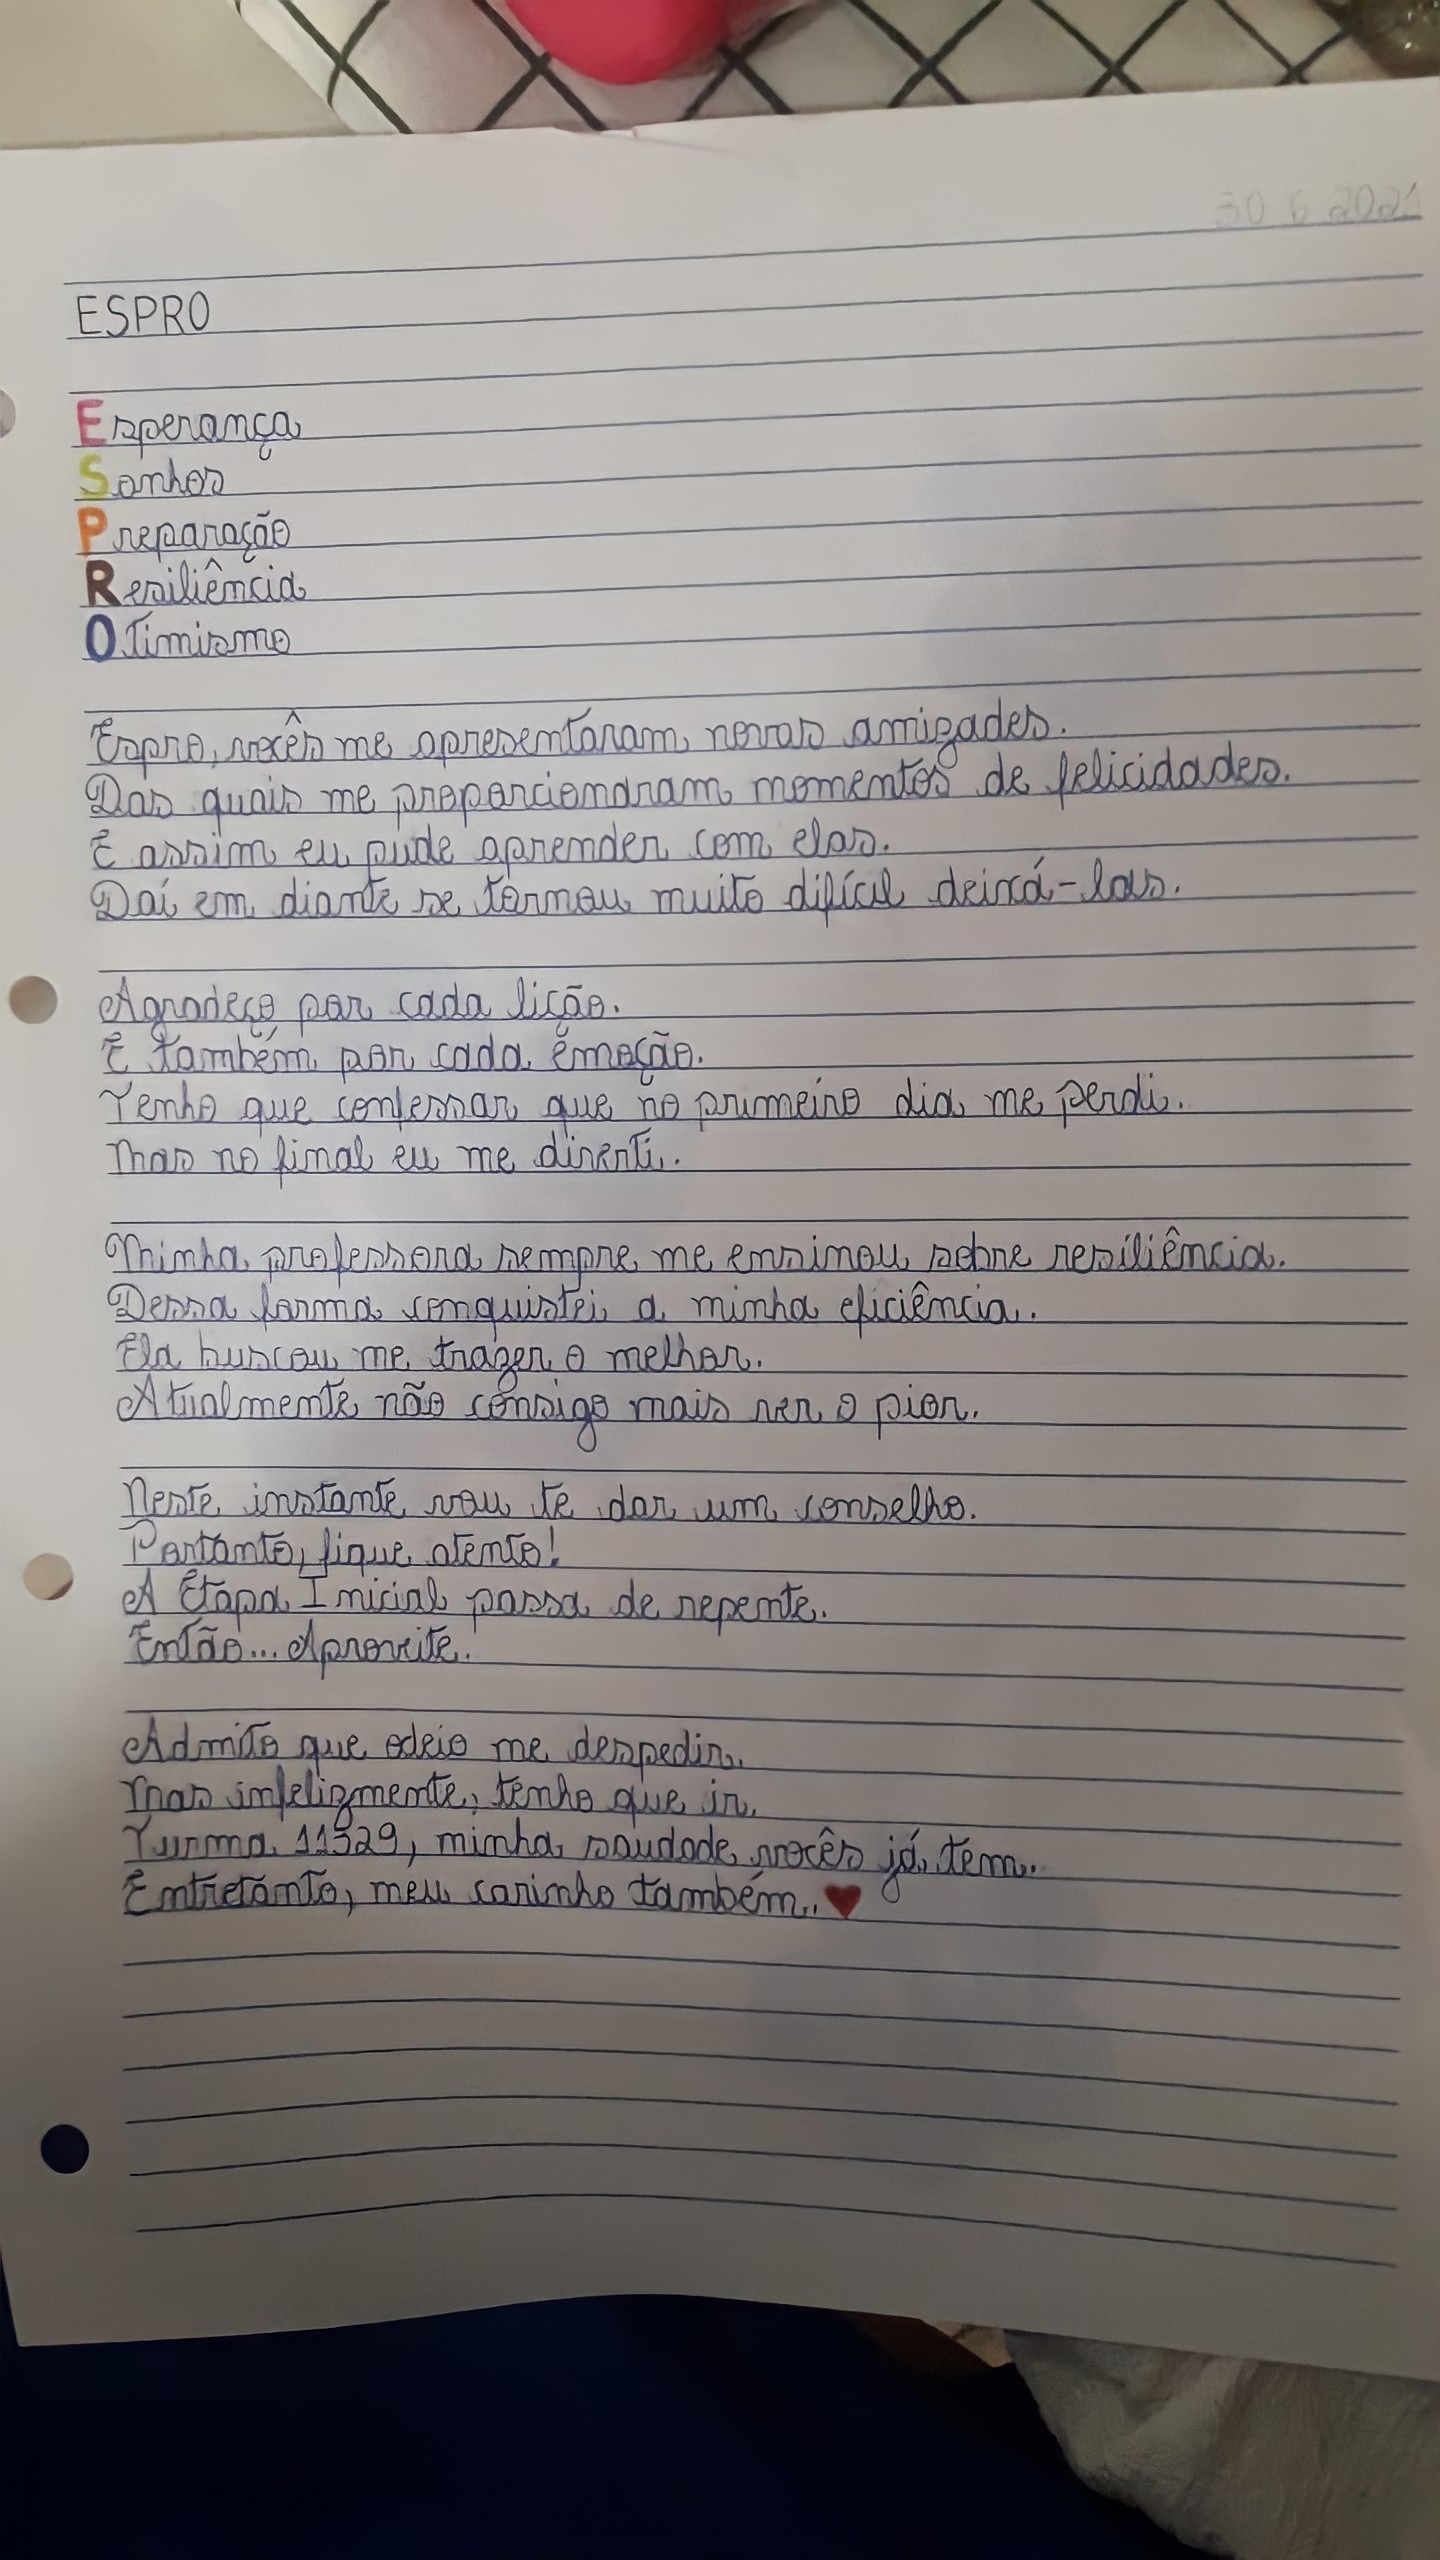 30 6 2021
ESPRO
Esperança
Sonhos
Preparação
Resiliência
Otimismo
Espro, vocês me apresentaram novas amizades.
Das quais me proporcionaram momentos de felicidades.
E assim eu pude aprender com elas.
Daí em diante se tornou muito difícil deixá-las.
Agradeço por cada lição.
E também por cada emoção.
Tenho que confessar que no primeiro dia me perdi.
Mas no final eu me diverti.
Minha professora sempre me ensinou sobre resiliência.
Dessa forma conquistei a minha eficiência.
Ela buscou me trazer o melhor.
Atualmente não consigo mais ver o pior.
Neste instante vou te dar um conselho.
Portanto, fique atento!
A Etapa Inicial passa de repente.
Então... Aproveite.
Admito que odeio me despedir.
Mas infelizmente, tenho que ir.
Turma 11529, minha saudade vocês já tem.
Entretanto, meu carinho também. ♥